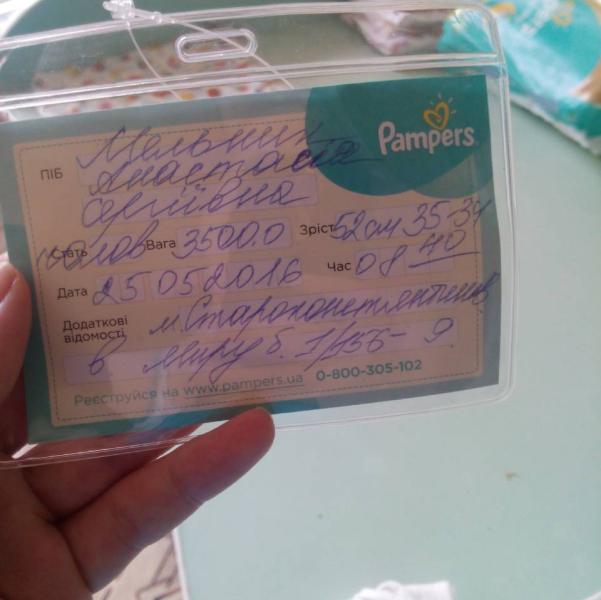 Pampers
ПІБ Мельник
Анастасія
Сергіївна
Стать чолов Вага 3500.0 Зріст 52 см 35-34
Дата 25 05 2016 Час 08 40
Додаткові відомості м. Староконстянтинів
в. Миру б. 1/156 - 9
Реєструйся на www.pampers.ua 0-800-305-102